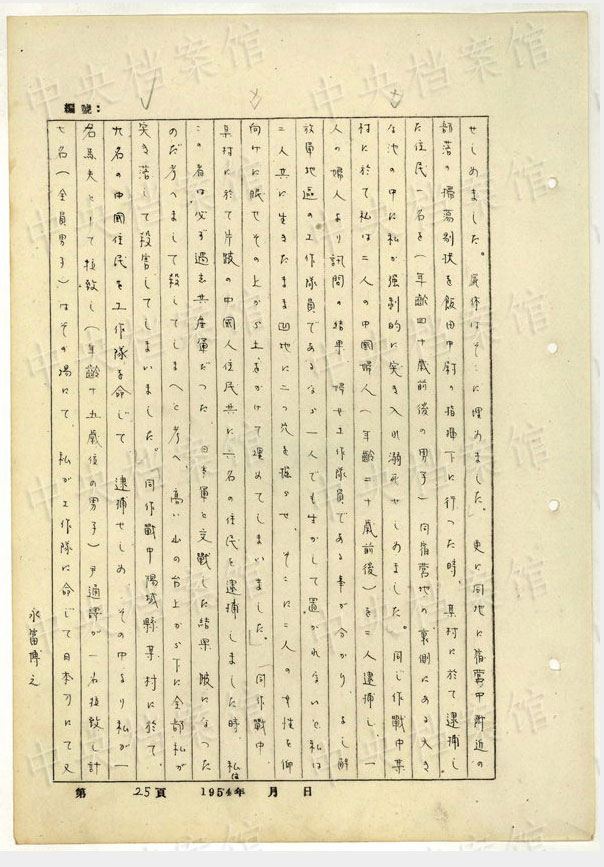 編號：
せしめました。屍体はそこに埋めました。更に同地に宿営中附近の
部落の掃蕩剔抉を飯田中尉の指揮下に行った時、某村に於て逮捕し
た住民一名を(年齢四十歳前後の男子)同宿営地の裏側にある大き
な池の中に私が強制的に突き入れ溺死せしめました。同じ作戰中某
村に於て私は二人の中國婦人(年齢二十歳前後)を二人逮捕し、一
人の婦人より訊問の結果、婦女工作隊員である事が分かり、よし解
放軍地區の工作隊員であるなら一人でも生かして置かれないと私は
二人共に生きたまま凹地に二つ穴を掘らせ、そこに二人の女性を仰
向けに眠せその上から土をかけて埋めてしまいました。同作戰中
某村に於て片跛の中國人住民共に六名の住民を逮捕しました時、私は
この者は必ず過去共産軍だつた日本軍と交戰した結果跛になつた
のだ考へまして殺してしまへと考へ、高い山の台上から下に全部私が
突き落して殺害してしまいました。同作戰中陽城縣某村に於て、
九名の中國住民を工作隊を命じて逮捕せしめ、その中より私が一
名馬夫として拉致し(年齢十五歳位の男子)尹通譯が一名拉致し計
七名(全員男子)はその場にて、私が工作隊に命じて日本刀にて又
永富博之
第 25頁 1954年 月 日
中央档案馆